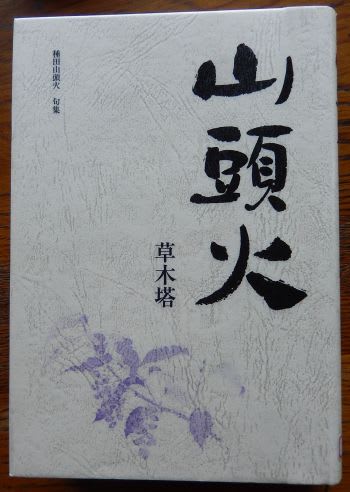 山頭火
草木塔
種田山頭火 句集